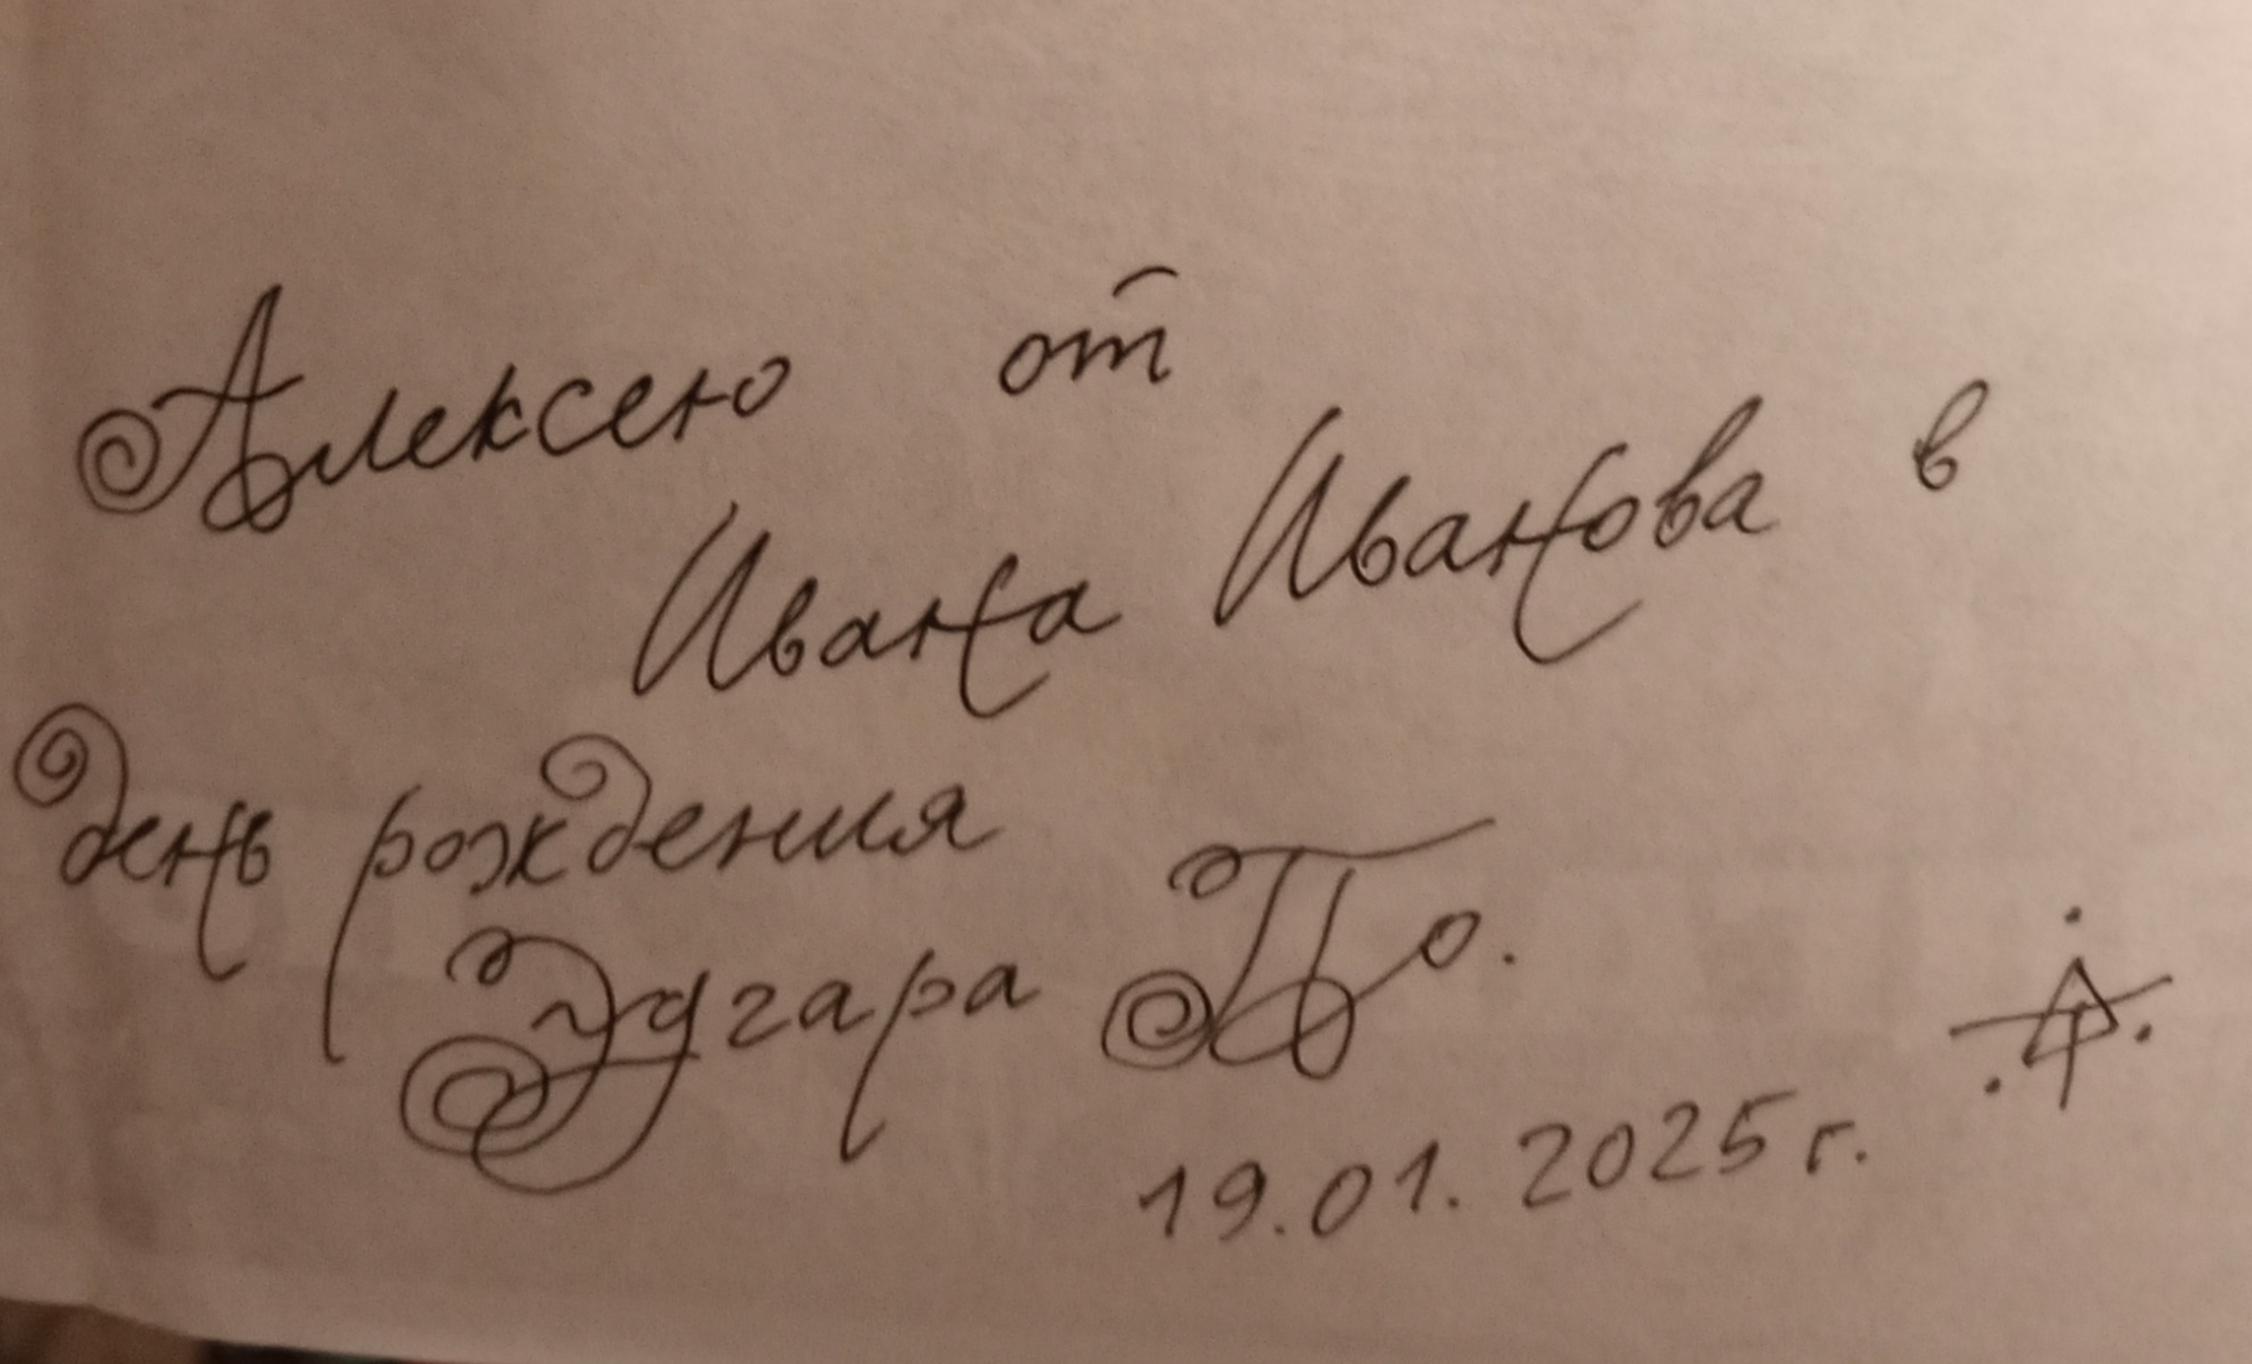 Алексею от
Ивана Иванова в
день рождения
Эдгара По.
19.01.2025 г.